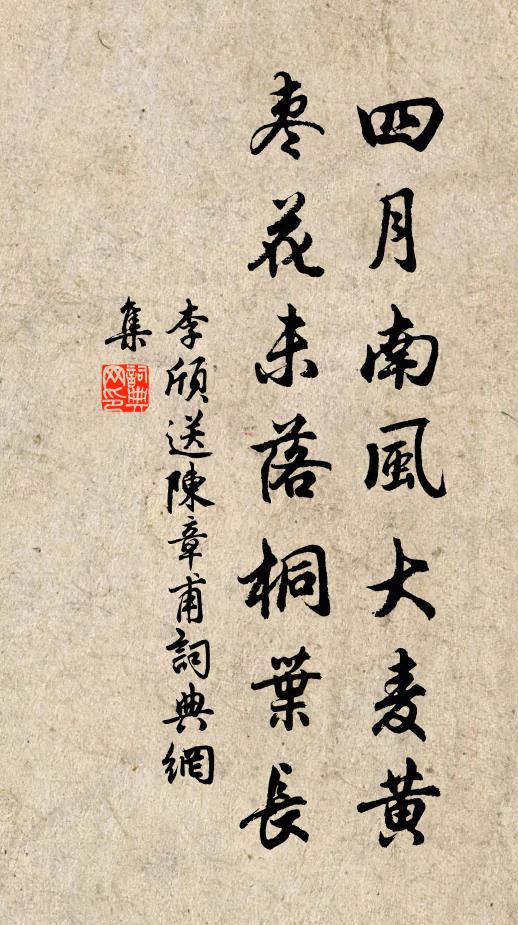 四月南風大麦黄
枣花未落桐葉長
李頎送陳章甫詞典網
集
詞典
网印